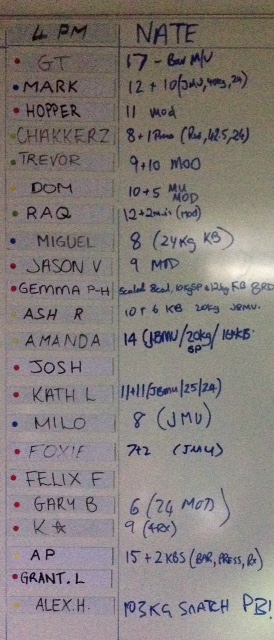 4 PM NATE
GT 17 - Bar M/U
MARK 12 + 10 (JMU, 40kg, 24)
HOPPER 11 mod
CHAKKERZ 8 + 1 (Rx, 42.5, 24)
TREVOR 9+10 MOD
DOM 10+5 MU MOD
RAQ 12+2min (mod)
MIGUEL 8 (24kg KB)
JASON V 9 MOD
GEMMA P-H Scaled KB BRD
ASH R 10+6 KB 20kg JBMU.
AMANDA 14 (JBMU/20kg/16KB.
SP
JOSH
KATH L 11+11/JBmu/25/24)
MILO 8 (JMU)
FOXIE 7+2 (JMU)
FELIX F
GARY B 6 (24 MOD)
K☆ 9 (4Rx)
AP 15 + 2 KBS (BAR, PRESS, Rx)
GRANT. L
ALEX.H. 103 KG SNATCH PB!